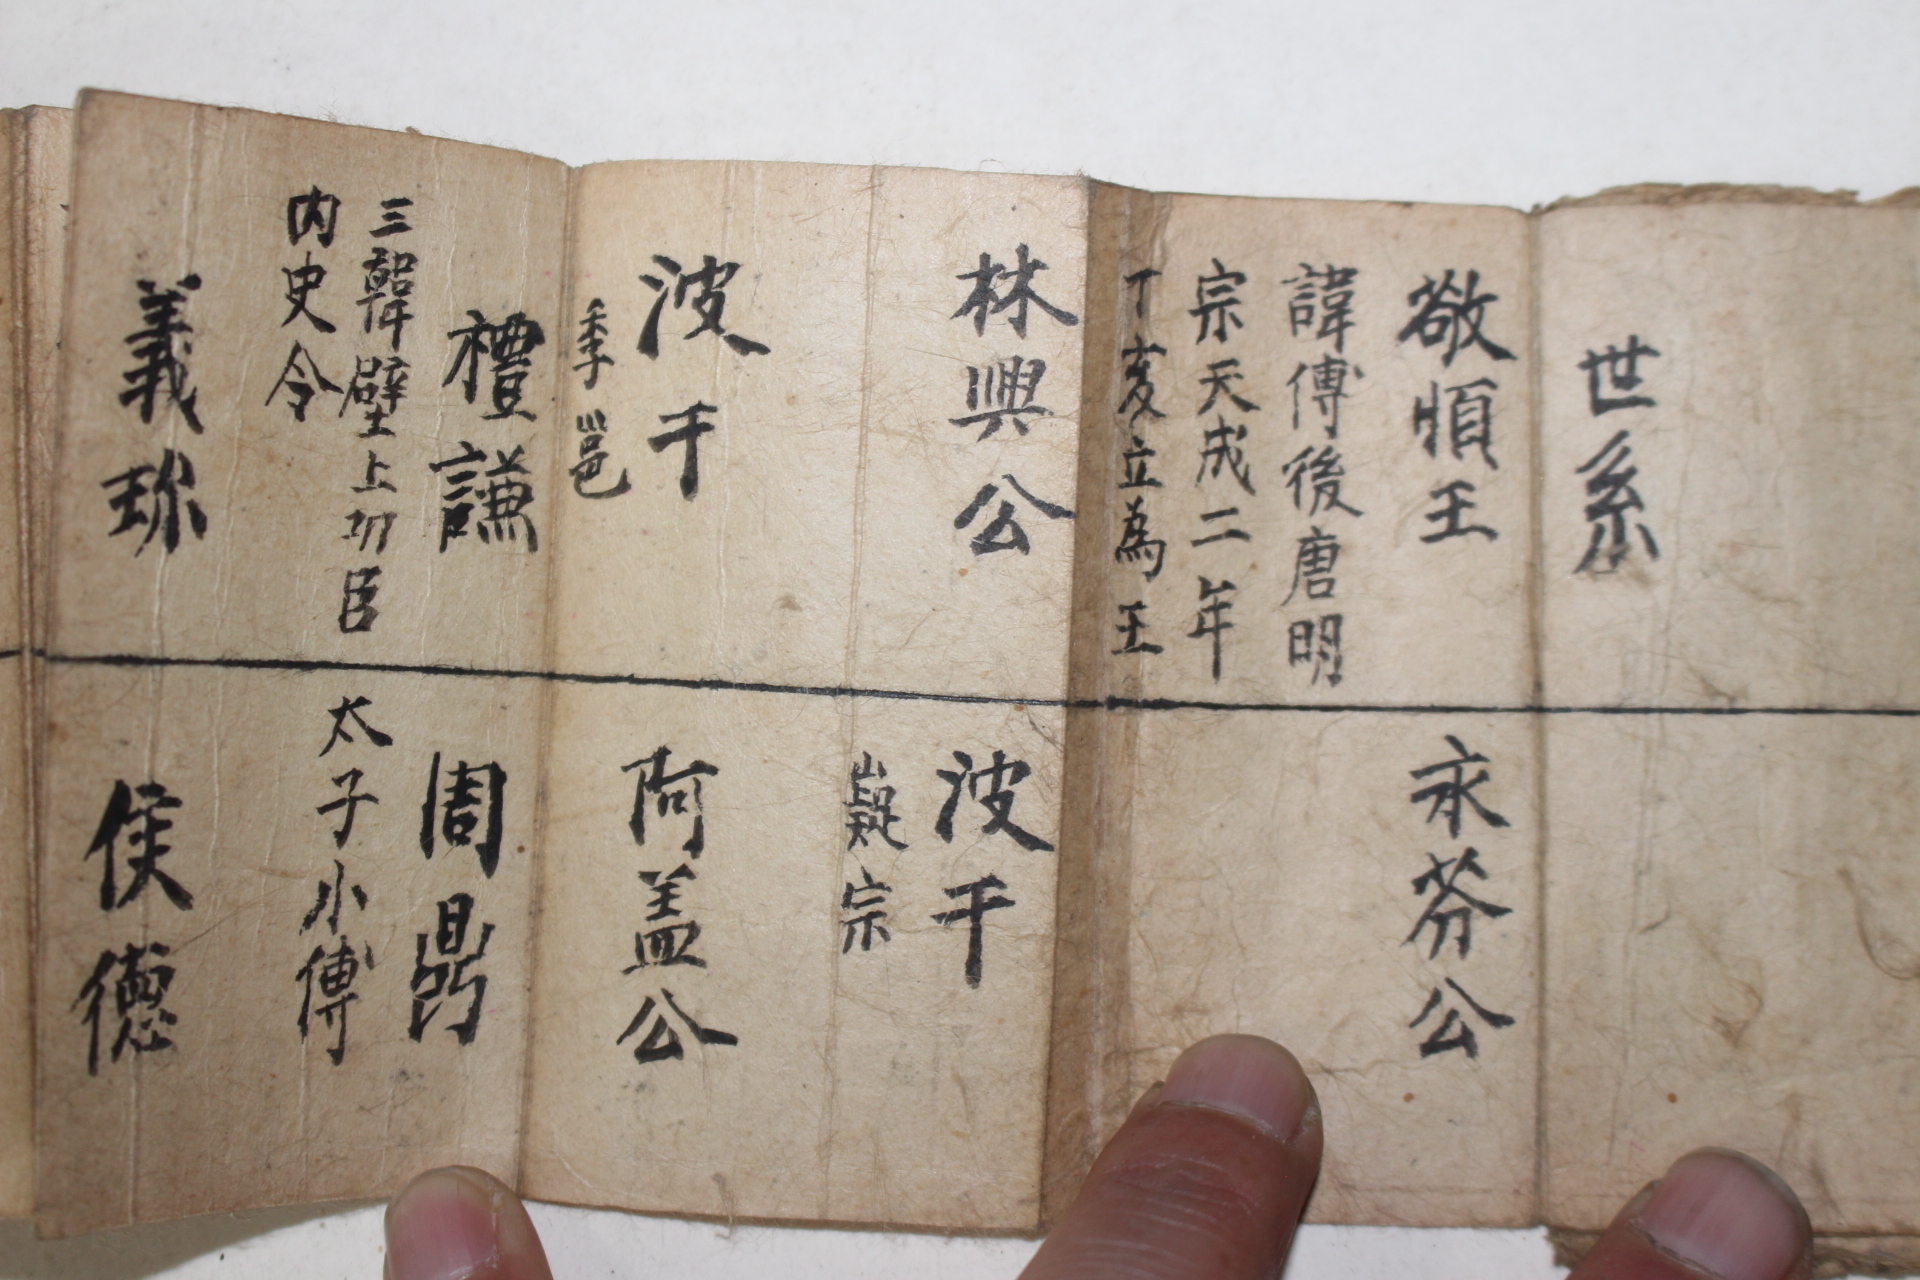 世系
敬順王
諱傅後唐明
宗天成二年
丁亥立為王
林興公
波千
季邕
禮謙
三韓壁上功臣
内史令
義珎
永芬公
波千
嶷宗
阿盖公
周鼎
太子小傅
侯德